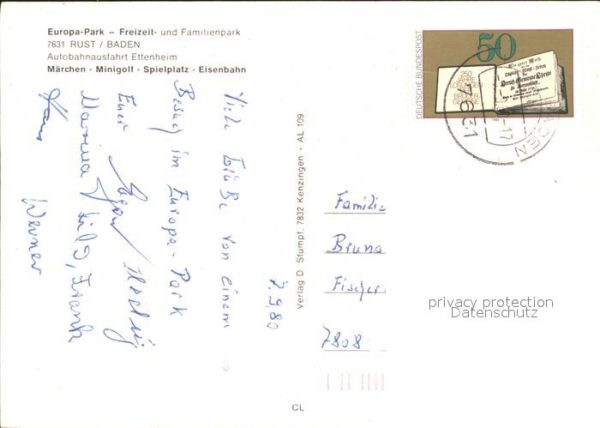 Europa-Park – Freizeit- und Familienpark
7631 RUST / BADEN
Autobahnausfahrt Ettenheim
Märchen - Minigolf - Spielplatz - Eisenbahn
7.9.80
Viele Grüße von einem
Besuch im Europa-Park
Euer
Marina, Frank
Hans Werner
Verlag D. Stumpf, 7832 Kenzingen · AL 109
DEUTSCHE BUNDESPOST
50
7631
Familie
Bruno
Fischer
7808
privacy protection
Datenschutz
CL